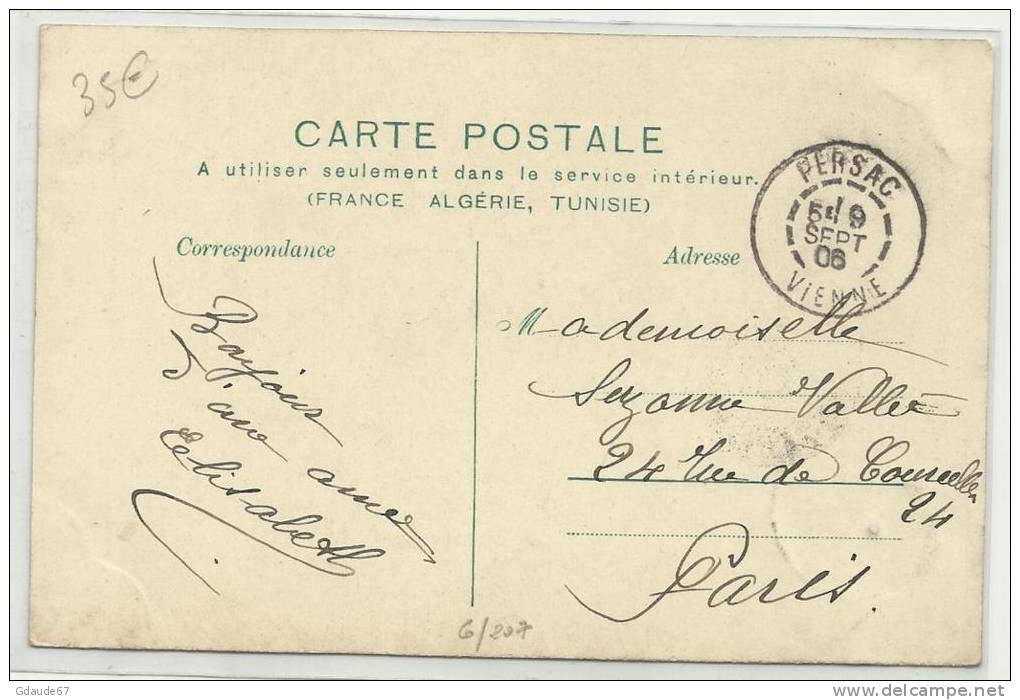 35€
CARTE POSTALE
A utiliser seulement dans le service intérieur.
(FRANCE ALGÉRIE, TUNISIE)
PERSAC
9
SEPT
06
VIENNE
Correspondance
Adresse
d'une amie
Elisabeth
Mademoiselle
Suzanne Vallée
24 Rue de Courcelles
24
Paris.
6/207
Gdaude67
www.delcampe.net